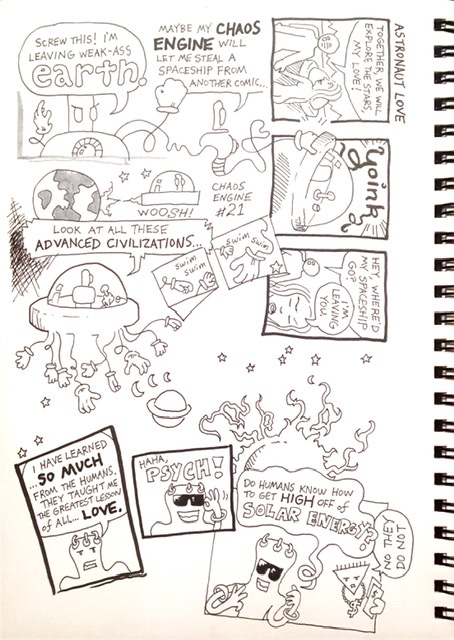 SCREW THIS! I'M
LEAVING WEAK-ASS
earth.
MAYBE MY CHAOS
ENGINE WILL
LET ME STEAL A
SPACESHIP FROM
ANOTHER COMIC...
ASTRONAUT LOVE
TOGETHER, WE WILL
EXPLORE THE STARS,
MY LOVE!
Yoink
HEY, WHERE'D
MY SPACESHIP
GO?
I'M
LEAVING
YOU
WOOSH!
CHAOS
ENGINE
#21
LOOK AT ALL THESE
ADVANCED CIVILIZATIONS...
SWIM
SWIM
SWIM
SWIM
I HAVE LEARNED
...SO MUCH
FROM THE HUMANS.
THEY TAUGHT ME
THE GREATEST LESSON
OF ALL... LOVE.
HAHA,
PSYCH!
DO HUMANS KNOW HOW
TO GET HIGH OFF OF
SOLAR ENERGY?
NO THEY
DO NOT